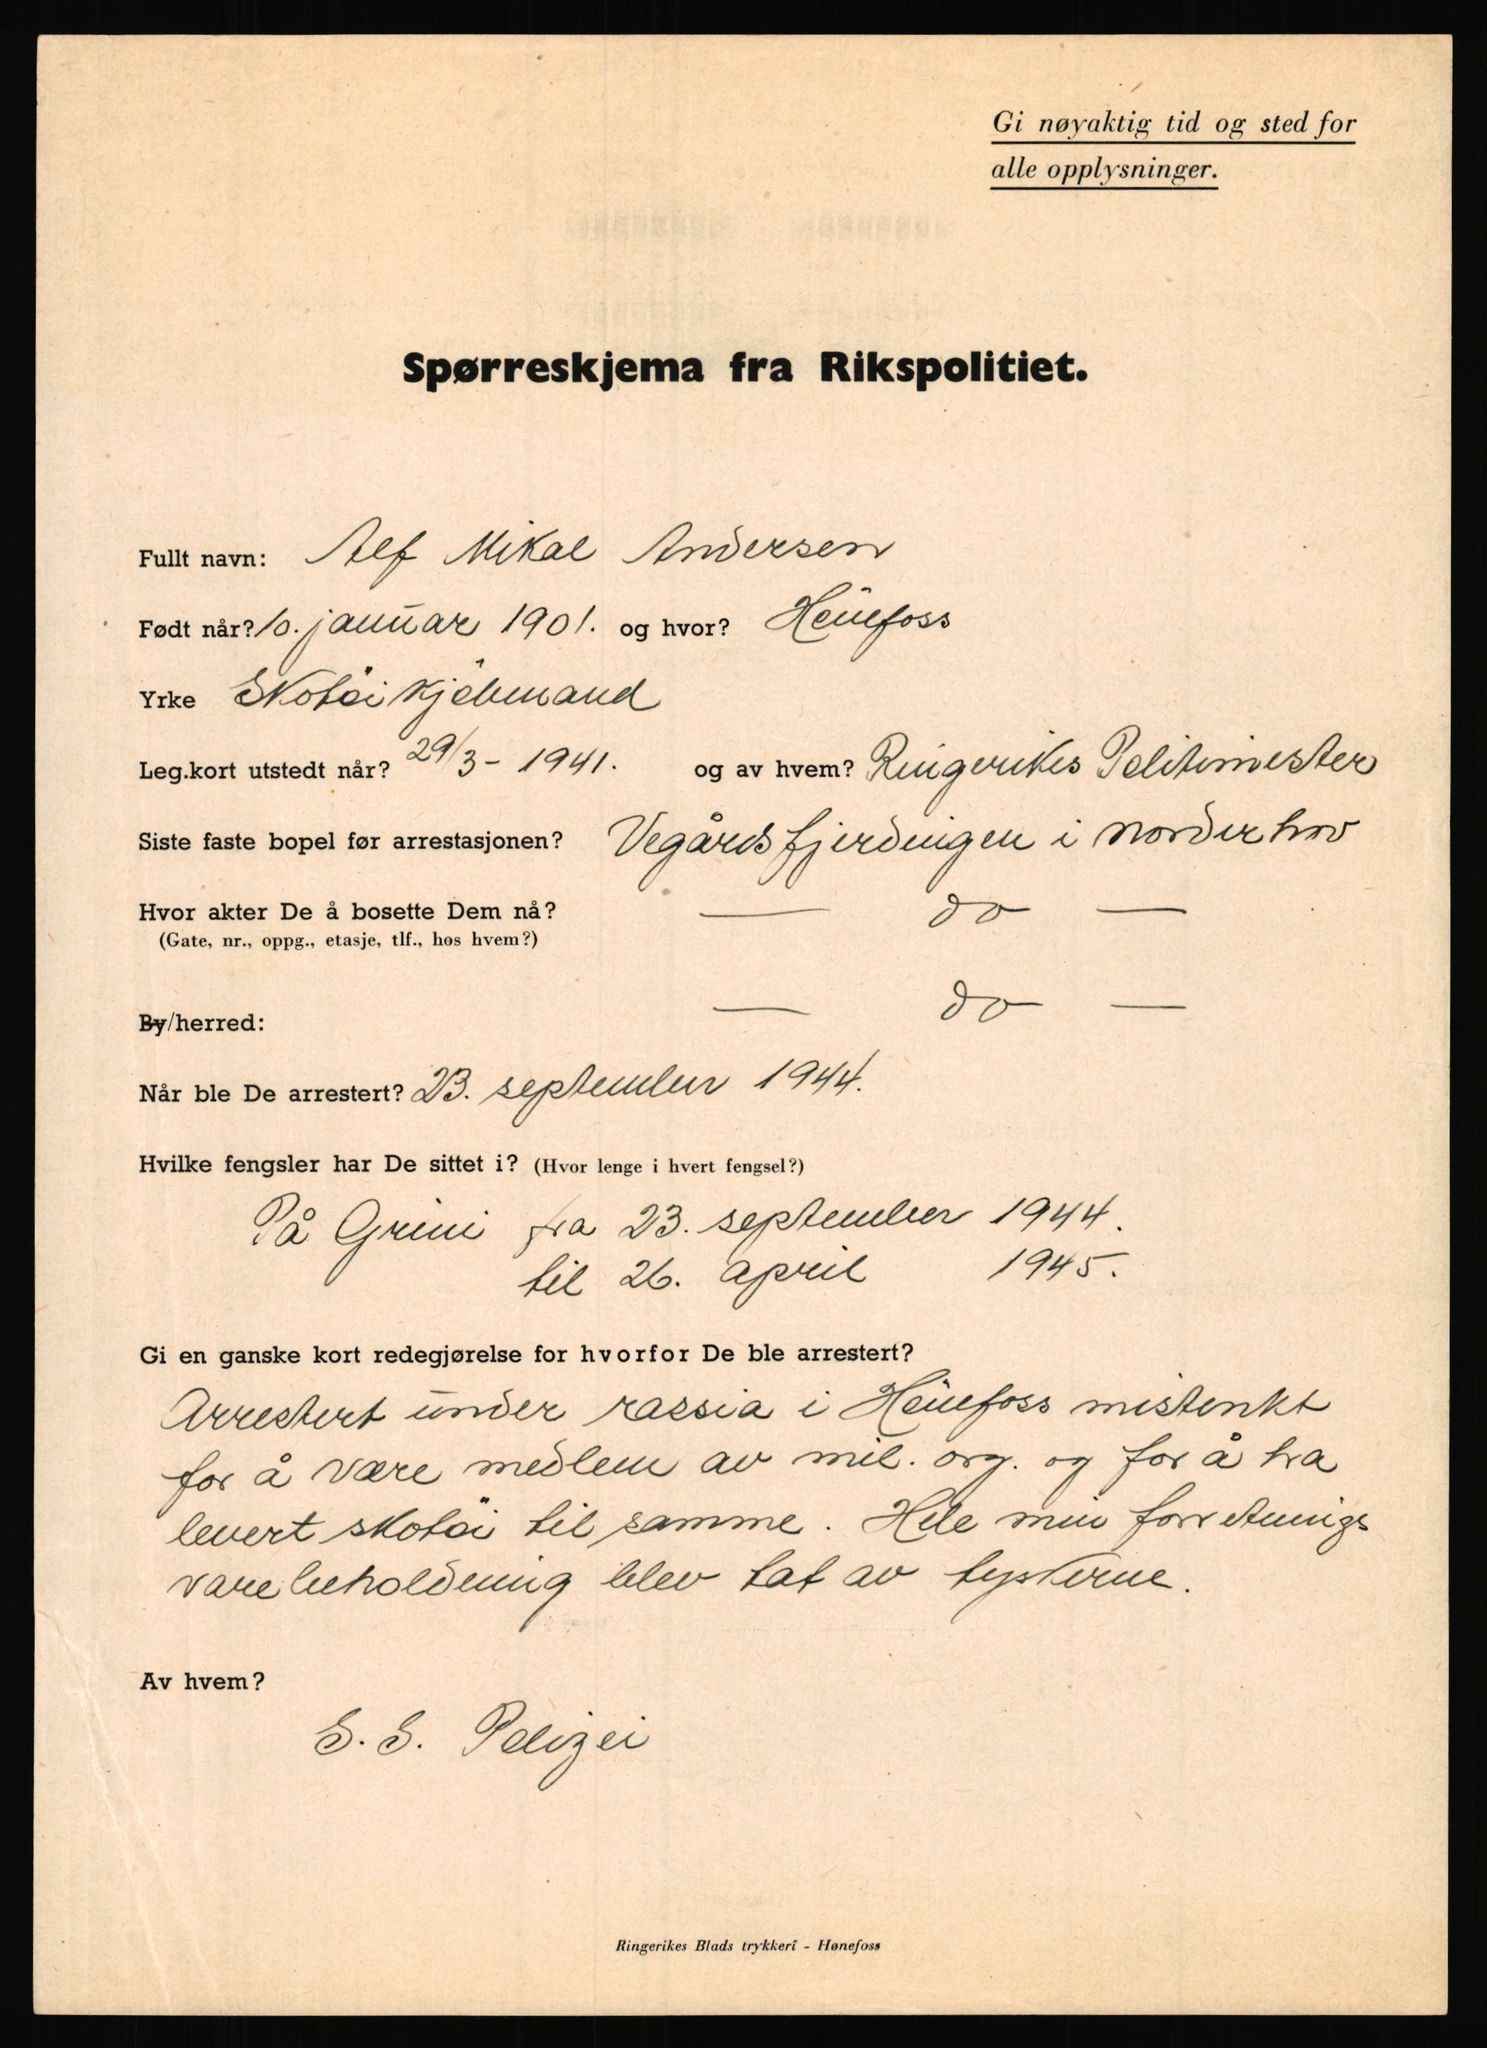 Gi nøyaktig tid og sted for
alle opplysninger.
Spørreskjema fra Rikspolitiet.
Fullt navn: Alf Mikal Andersen
Født når? 10. januar 1901. og hvor? Hönefoss
Yrke Skotöikjöbmand
Leg.kort utstedt når? 29/3 - 1941. og av hvem? Ringerikes Politimester
Siste faste bopel før arrestasjonen? Vegårdsfjerdingen i Norderhov
Hvor akter De å bosette Dem nå? — do —
(Gate, nr., oppg., etasje, tlf., hos hvem?)
By/herred: — do —
Når ble De arrestert? 23. september 1944.
Hvilke fengsler har De sittet i? (Hvor lenge i hvert fengsel?)
På Grini fra 23. september 1944.
til 26. april 1945.
Gi en ganske kort redegjørelse for hvorfor De ble arrestert?
Arrestert under razzia i Hönefoss mistenkt
for å være medlem av mil. org. og for å ha
levert skotöi til samme. Hele min forretnings
varebeholdning blev tat av tyskerne.
Av hvem?
S. S. Polizei
Ringerikes Blads trykkeri - Hønefoss